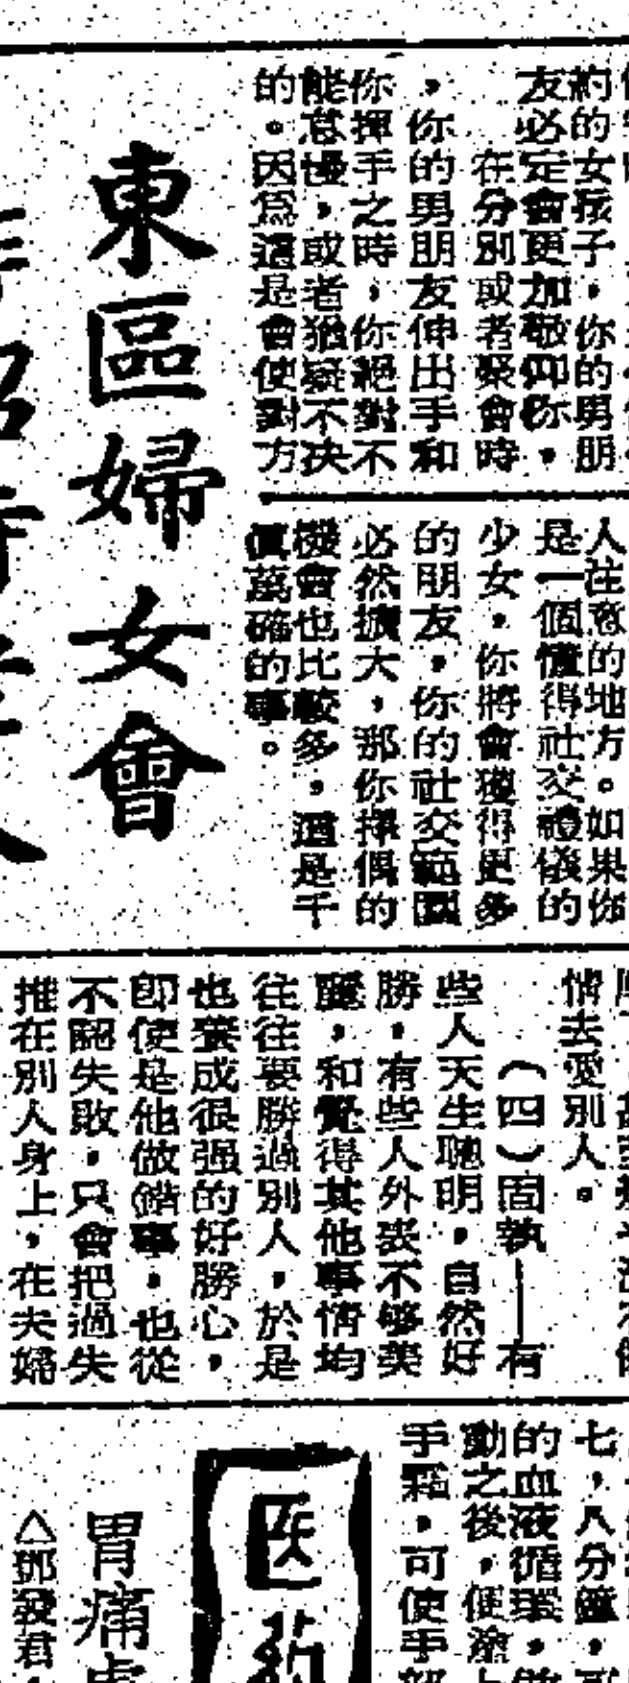 約的女孩子，你的男朋
友必定會更加敬仰你。
在分別或者聚會時
，你的男朋友伸出手和
你握手之時，你絕對不
能怠慢，或者猶疑不决
的。因爲這是會使對方
人注意的地方。如果你
是一個懂得社交禮儀的
少女，你將會獲得更多
的朋友，你的社交範圍
必然擴大，那你擇偶的
機會也比較多，這是千
眞萬確的事。
東區婦女會
情去愛別人。
（四）固執——有
些人天生聰明，自然好
勝，有些人外表不够美
麗，和覺得其他事情均
往往要勝過別人，於是
也養成很强的好勝心，
即使是他做錯事，也從
不認失敗，只會把過失
推在別人身上，在夫婦
七，八分鐘，
的血液循環，
動之後，便塗
手霜，可使手
医药
胃痛
△鄧發君